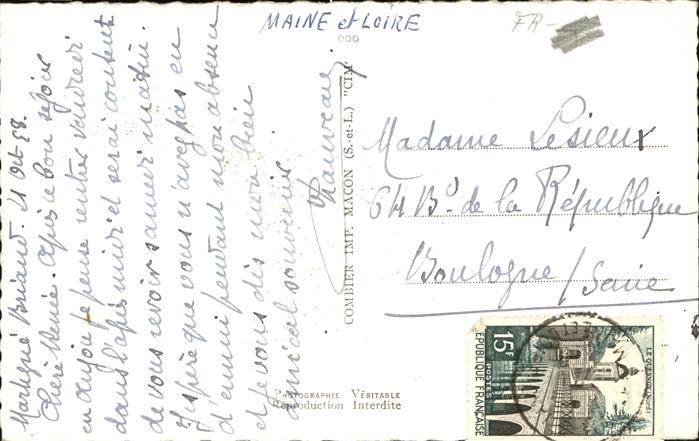 MAINE et LOIRE
FR-
Martigné Briand. 21 Oct 58.
Chère Mémé. Après ce bon séjour
en Anjou je pense rentrer vendredi
dans l'après midi et serai content
de vous revoir samedi matin.
J'espère que vous n'avez pas eu
d'ennui pendant mon absence
et je vous dis mon bien
amical souvenir
Chauveau
COMBIER IMP. MACON (S.-et-L.) "CIM"
Madame Lesieux
64 Bd. de la République
Boulogne / Seine
15F
POSTES
LE QUESNOY
REPUBLIQUE FRANÇAISE
PHOTOGRAPHIE VÉRITABLE
Reproduction Interdite